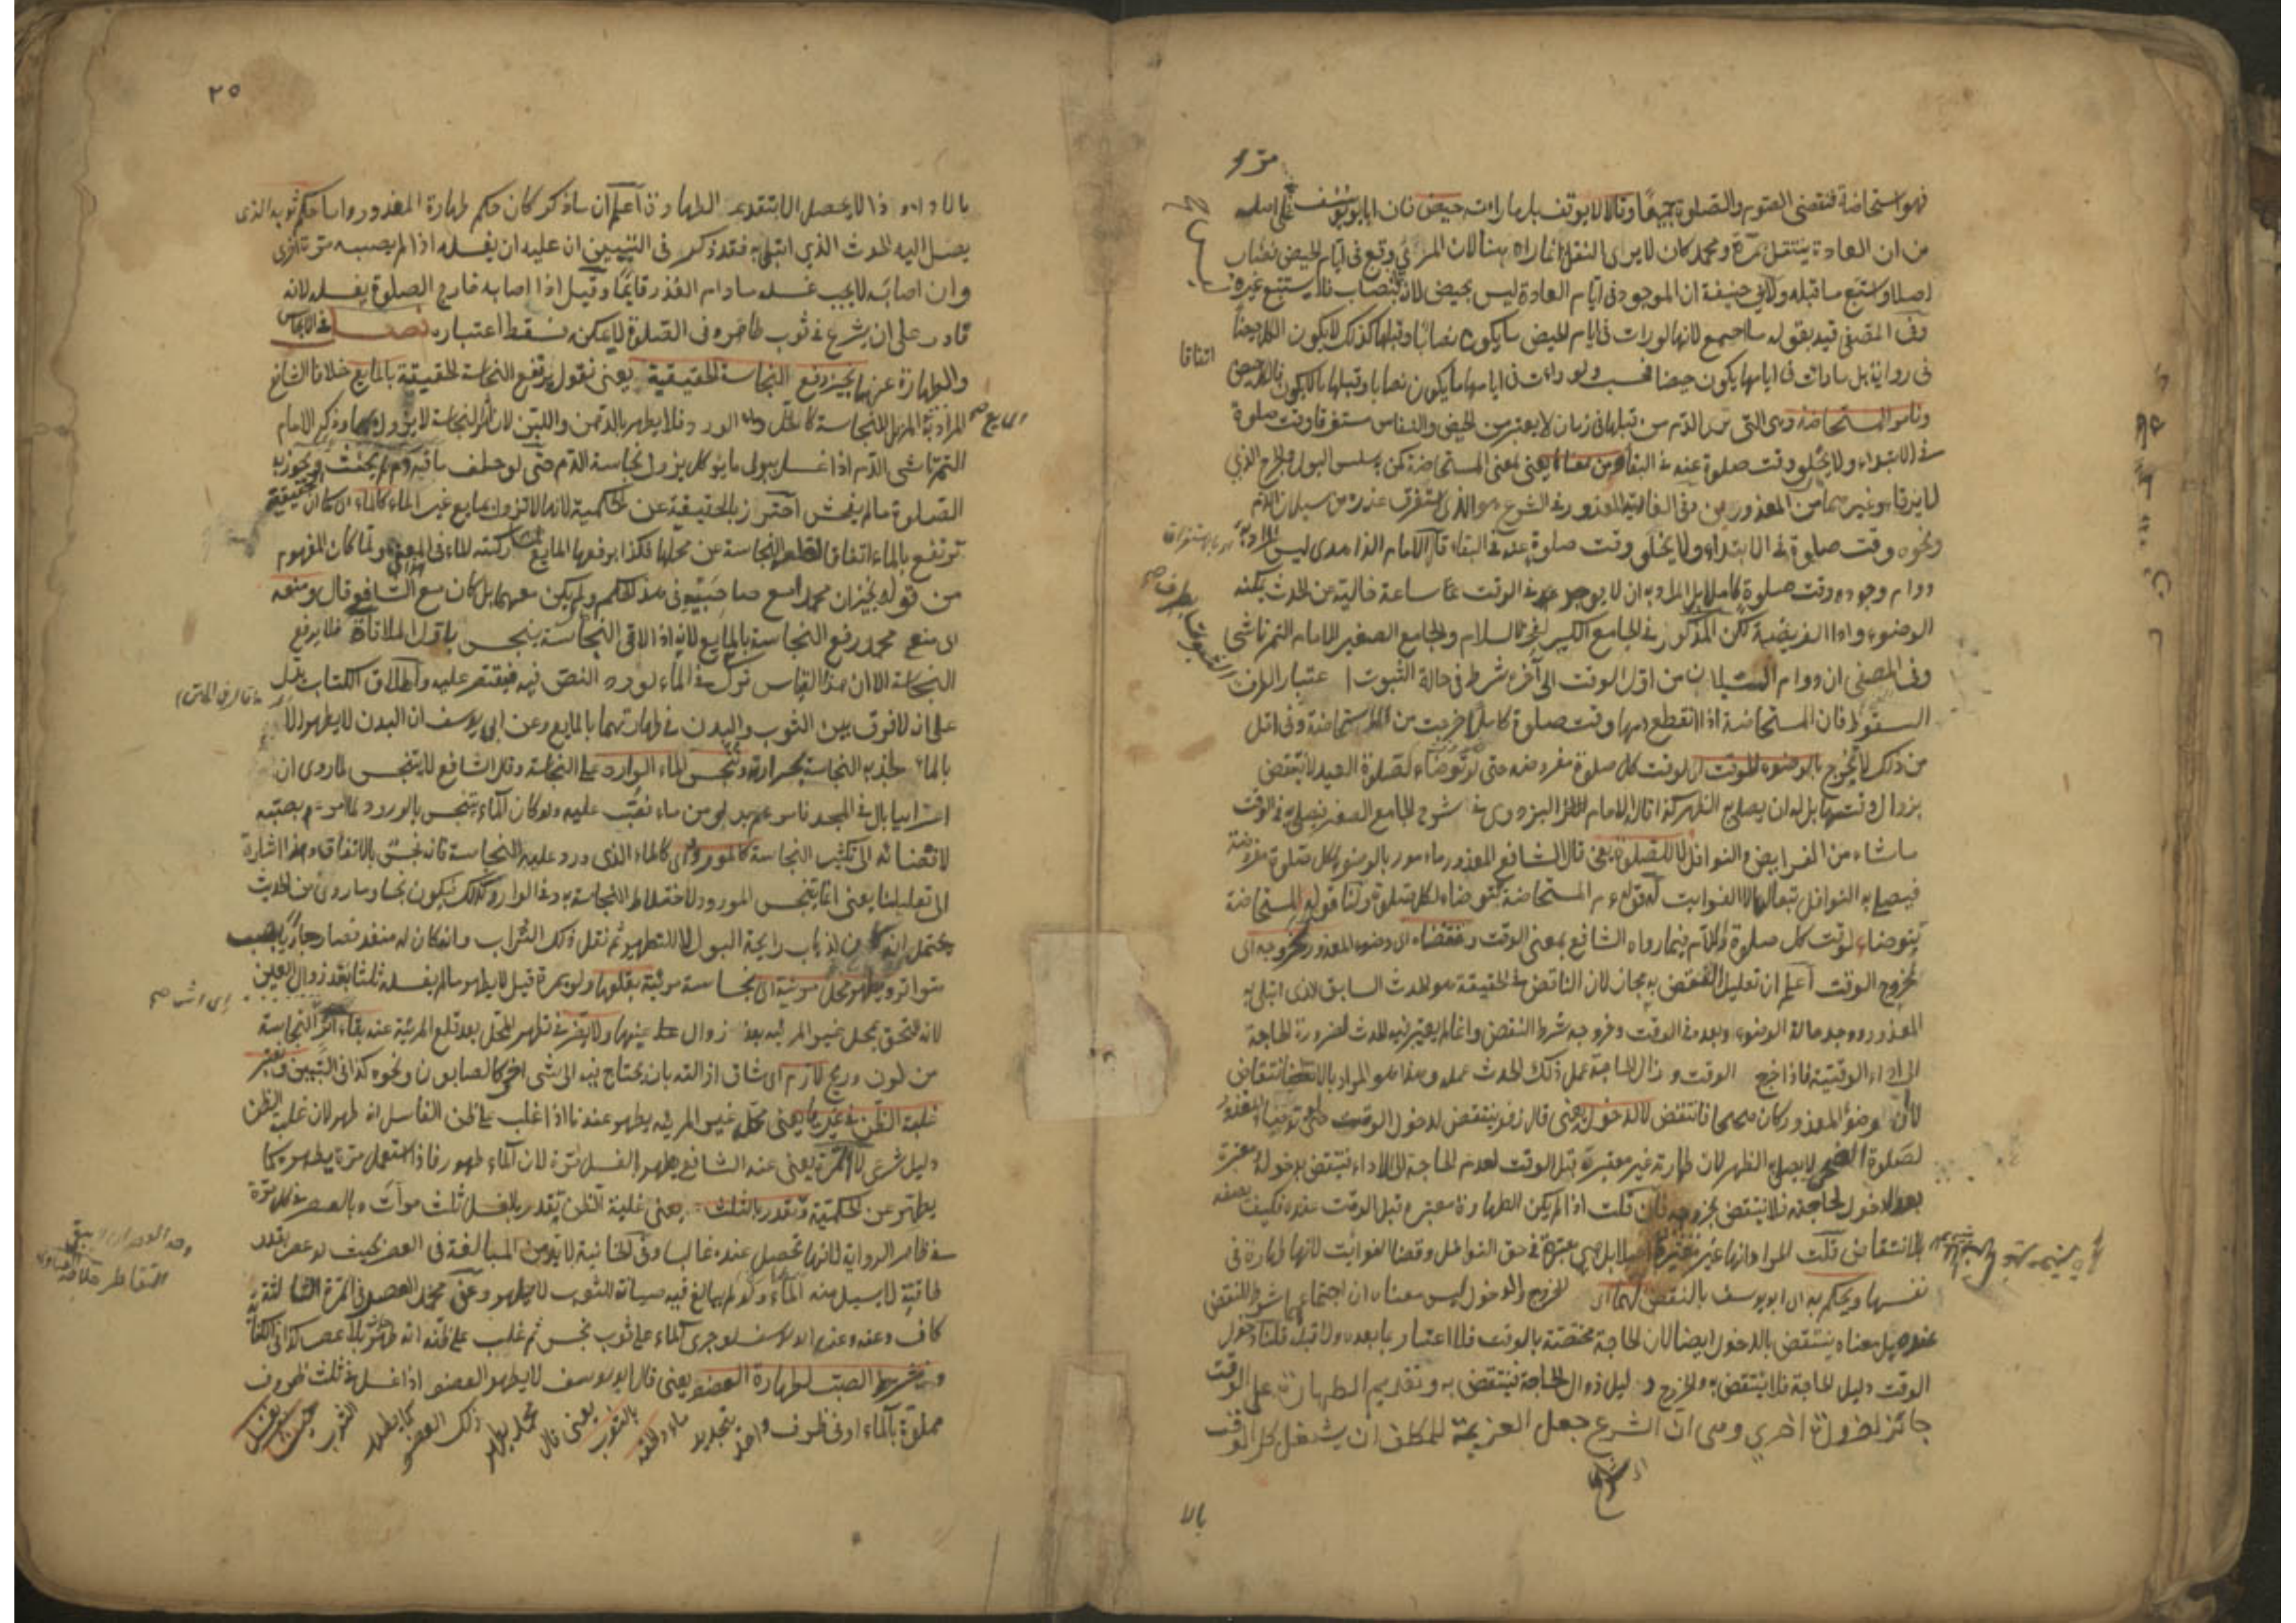 فهو استحاضة فتقضى الصوم والصلوة جميعا وقالا لا يوقف بل ما رأته حيض فان ابا يوسف على اصله
من ان العادة ينتقل بمرة ومحمد كان لا يرى النقل انما راه هنا لان المرئي وقع في ايام الحيض نصاب
اصلا واستتبع ما قبله ولابي حنيفة ان الموجود في ايام العادة ليس بحيض لانه بنصاب فلا يستتبع غيره
وفي المصفى قيد بقوله ما اجمع لانها لو رات في ايام الحيض ما يكون نصابا وقبلها كذلك لا يكون الكل حيضا
اتفاقا
في رواية بل ما رات في ايامها يكون حيضا فحسب ولو رات في ايامها ما يكون نصابا وقبلها ما لا يكون فالكل حيض
المستحاضة وهي التي ترى الدم من قبلها في زمان لا يعتبر من الحيض والنفاس مستغرقا وقت صلوة
في الابتداء ولا يخلو وقت صلوة عنه في البقاء ومن بمعناها يعني بمعنى المستحاضة كمن به سلس البول والجرح الذي
لا يرقا وغيرهما من المعذورين وفي الغاية المعذور في الشرع هو الذي استغرق عذره من سيلان الدم
ونحوه وقت صلوة في الابتداء ولا يخلى وقت صلوة عنه في البقاء قال الامام الزاهدى ليس المراد به
دوام وجوده وقت صلوة كاملا بل المراد به ان لا يوجد في الوقت ساعة خالية من الحدث يمكنه
الوضوء واداء الفريضة لكن المذكور في الجامع الكبير لفخر الاسلام والجامع الصغير للامام التمرتاشي
وفي المصفى ان دوام السيلان من اول الوقت الى آخره شرط في حالة الثبوت اعتبارا لطرف
السقوط فان المستحاضة اذا انقطع دمها وقت صلوة كاملا خرجت من المستحاضة وفي اقل
من ذلك لا تخرج بالوضوء للوقت اى لوقت كل صلوة مفروضة حتى لو توضاء لصلوة العيد لا ينتقض
بزوال وقتها بل له ان يصلى به الظهر كذا قاله الامام البزدوى في شرح الجامع الصغير فيصلى به في الوقت
ما شاء من الفرايض والنوافل لا للصلوة يعني قال الشافعي المعذور مامور بالوضوء لكل صلوة مفروضة
فيصلي به النوافل تبعا لها لا الفوايت له قوله عم المستحاضة تتوضاء لكل صلوة ولنا قوله المستحاضة
يتوضاء لوقت كل صلوة واللام فيما رواه الشافعي بمعنى الوقت ونقضناه اى وضوء المعذور بخروجه اى
بخروج الوقت اعلم ان تعليل النقض به مجاز لان الناقض في الحقيقة هو الحدث السابق الذي ابتلى به
المعذور ووجد حالة الوضوء وبعده في الوقت وخروجه شرط النقض وانما لم يعتبر فيه الحدث لضرورة الحاجة
الى اداء الوقتية فاذا خرج الوقت وزال الحاجة عمل ذلك الحدث عمله وهذا هو المراد بالانتقاض
لان وضوء المعذور كان صحيحا فانتقض لا الدخول يعني قال زفر ينتقض لدخول الوقت حتى لو توضاء المعذور
لصلوة الضحى لا يصلى به الظهر لان طهارته غير معتبرة قبل الوقت لعدم الحاجة الى الاداء فينتقض بدخوله معتبرة
بعد الدخول لحاجته فلا ينتقض بخروجه فان قلت اذا لم يكن الطهارة معتبرة قبل الوقت عنده فكيف يصفه
بالانتقاض قلت المراد انها غير معتبرة بل هي معتبرة في حق النوافل وقضاء الفوايت لانها طهارة في
نفسها ويحكم به اى ابو يوسف بالنقض لهما اى للخروج والدخول ليس معناه ان اجتماعهما شرط للنقض
عنده بل معناه ينتقض بالدخول ايضا لان الحاجة مختصة بالوقت فلا اعتبار بما بعده ولا قبله قلنا دخول
الوقت دليل الحاجة فلا ينتقض به والخروج دليل زوال الحاجة فينتقض به وتقديم الطهارة على الوقت
جائز لضرورة اخرى وهي ان الشرع جعل العزيمة للمكلف ان يشغل كل الوقت
بالا
٢٥
بالاداء وذا لا يحصل الا بتقديم الطهارة اعلم ان ما ذكر كان حكم طهارة المعذور واما حكم ثوبه الذى
يصل اليه الحدث الذي ابتلى به فقد ذكر في التبيين ان عليه ان يغسله اذا لم يصبه مرة اخرى
وان اصابه لا يجب غسله ما دام العذر قايما وقيل اذا اصابه خارج الصلوة يغسله لانه
قادر على ان يشرع في ثوب طاهر وفي الصلوة لا يمكنه فسقط اعتباره فصل في الانجاس
والطهارة عنها يجيز رفع النجاسة الحقيقية يعنى نقول يرتفع النجاسة الحقيقة بالمايع خلافا للشافعي
المراد به المزيل للنجاسة كالخل وماء الورد فلا يطهر بالدهن واللبن لان اثر النجاسة لا يزول بهما وذكر الامام
التمرتاشى الدم اذا غسل ببول ما يؤكل يزول نجاسة الدم حتى لو حلف ما فيه دم لم يحنث ويجوز به
الصلوة ما لم يفحش احترز بالحقيقية عن الحكمية لانها لا تزول بمايع غير الماء كالماء اى كما ان الحقيقية
ترتفع بالماء اتفاقا لقلعه النجاسة عن محلها فكذا يرفعها المايع لمشاركته للماء في المعنى ولما كان المفهوم
من قوله يجيز ان محمدا مع صاحبيه في هذا الحكم ولم يكن معهما بل كان مع الشافعي قال ومنعه
اى منع محمد رفع النجاسة بالمايع لانه اذا لاقى النجاسة ينجس باول الملاقاة فلا يرفع
النجاسة الا ان هذا القياس ترك في الماء لورود النص فيه فيقتصر عليه واطلاق الكتاب يدل
على ان لا فرق بين الثوب والبدن في طهارتهما بالمايع وعن ابي يوسف ان البدن لا يطهر الا
بالماء لجذبه النجاسة بحرارته وننجس الماء الوارد على النجاسة وقال الشافعي لا يتنجس لما روى ان
اعرابيا بال في المسجد فامر عم بدلو من ماء فصب عليه ولو كان الماء يتنجس بالورود لما امر عم بصبه
لافضائه الى تكثير النجاسة كالمورود اى كالماء الذى ورد عليه النجاسة فانه نجس بالاتفاق وهذا اشارة
الى تعليلنا يعنى انما يتنجس المورود لاختلاط النجاسة به وفي الوارد كذلك فيكون نجسا وما روى من الحديث
يحتمل انه كان لذهاب رايحة البول لا للتطهير ثم نقل ذلك التراب وانه كان له منفذ فصار جاريا بصب
متواتر ويطهر محل مرئية اى نجاسة مرئية بقلعها ولو بمرة قيل لا يطهر ما لم يغسله ثلثا بعد زوال العين
لانه التحق بمحل غير المرئية بعد زوال عينها ولا يضر في تطهر المحل بعد قلع المرئية عند بقاء اثر النجاسة
من لون وريح لازم اى شاق ازالته بان يحتاج فيه الى شى اخر كالصابون ونحوه كذا في التبيين ونعتبر
غلبة الظن في غيرها يعنى محل غير المرئية يطهر عندنا اذا غلب على ظن الغاسل انه طهر لان غلبة الظن
دليل شرعى لا المرة يعنى عند الشافعي يطهر بالغسل مرة لان الماء طهور فاذا استعمل مرة يطهر كما
يطهر عن الحكمية ونقدر بالثلث يعنى غلبة الظن يقدر بالغسل ثلث مرات وبالعصر في كل مرة
في ظاهر الرواية لانها تحصل عنده غالبا وفي الخانية لا بد من المبالغة في العصر بحيث لو عصر بقدر
طاقته لا يسيل منه الماء ولو لم يبالغ فيه صيانة للثوب لا يطهر وعن محمد العصر في المرة الثالثة
كاف وعنه وعن ابي يوسف لو جرى الماء على ثوب نجس ثم غلب على ظنه انه طهر بلا عصر كذا في الكفاية
ويشرط الصب لطهارة العضو يعنى قال ابو يوسف لا يطهر العضو اذا غسل في ثلث ظروف
مملوة بالماء او في ظرف واحد بتجديد ماء والحقه بالثوب يعنى قال محمد يطهر ذلك العضو كما يطهر الثوب حيث يغسل